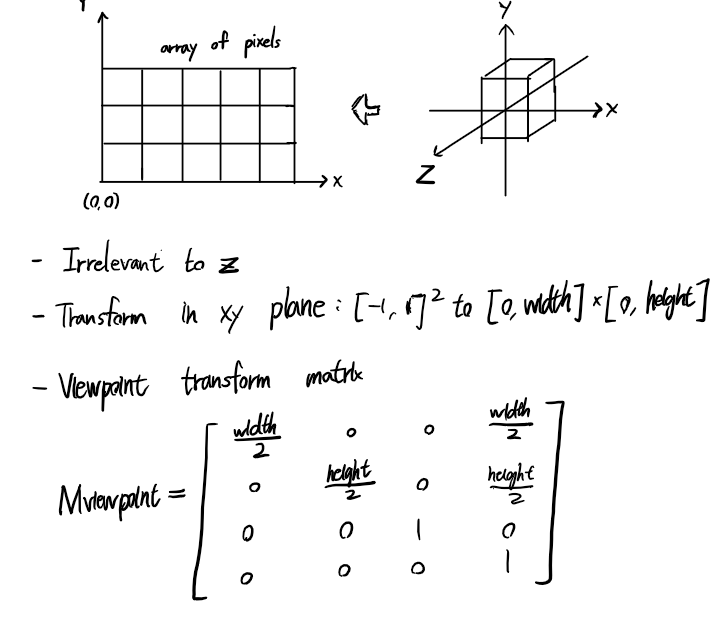 Y
array of pixels
X
(0,0)
Y
X
Z
- Irrelevant to z
- Transform in xy plane : [-1, 1]² to [0, width] × [0, height]
- Viewpoint transform matrix
Mviewpoint =
width/2 0 0 width/2
0 height/2 0 height/2
0 0 1 0
0 0 0 1